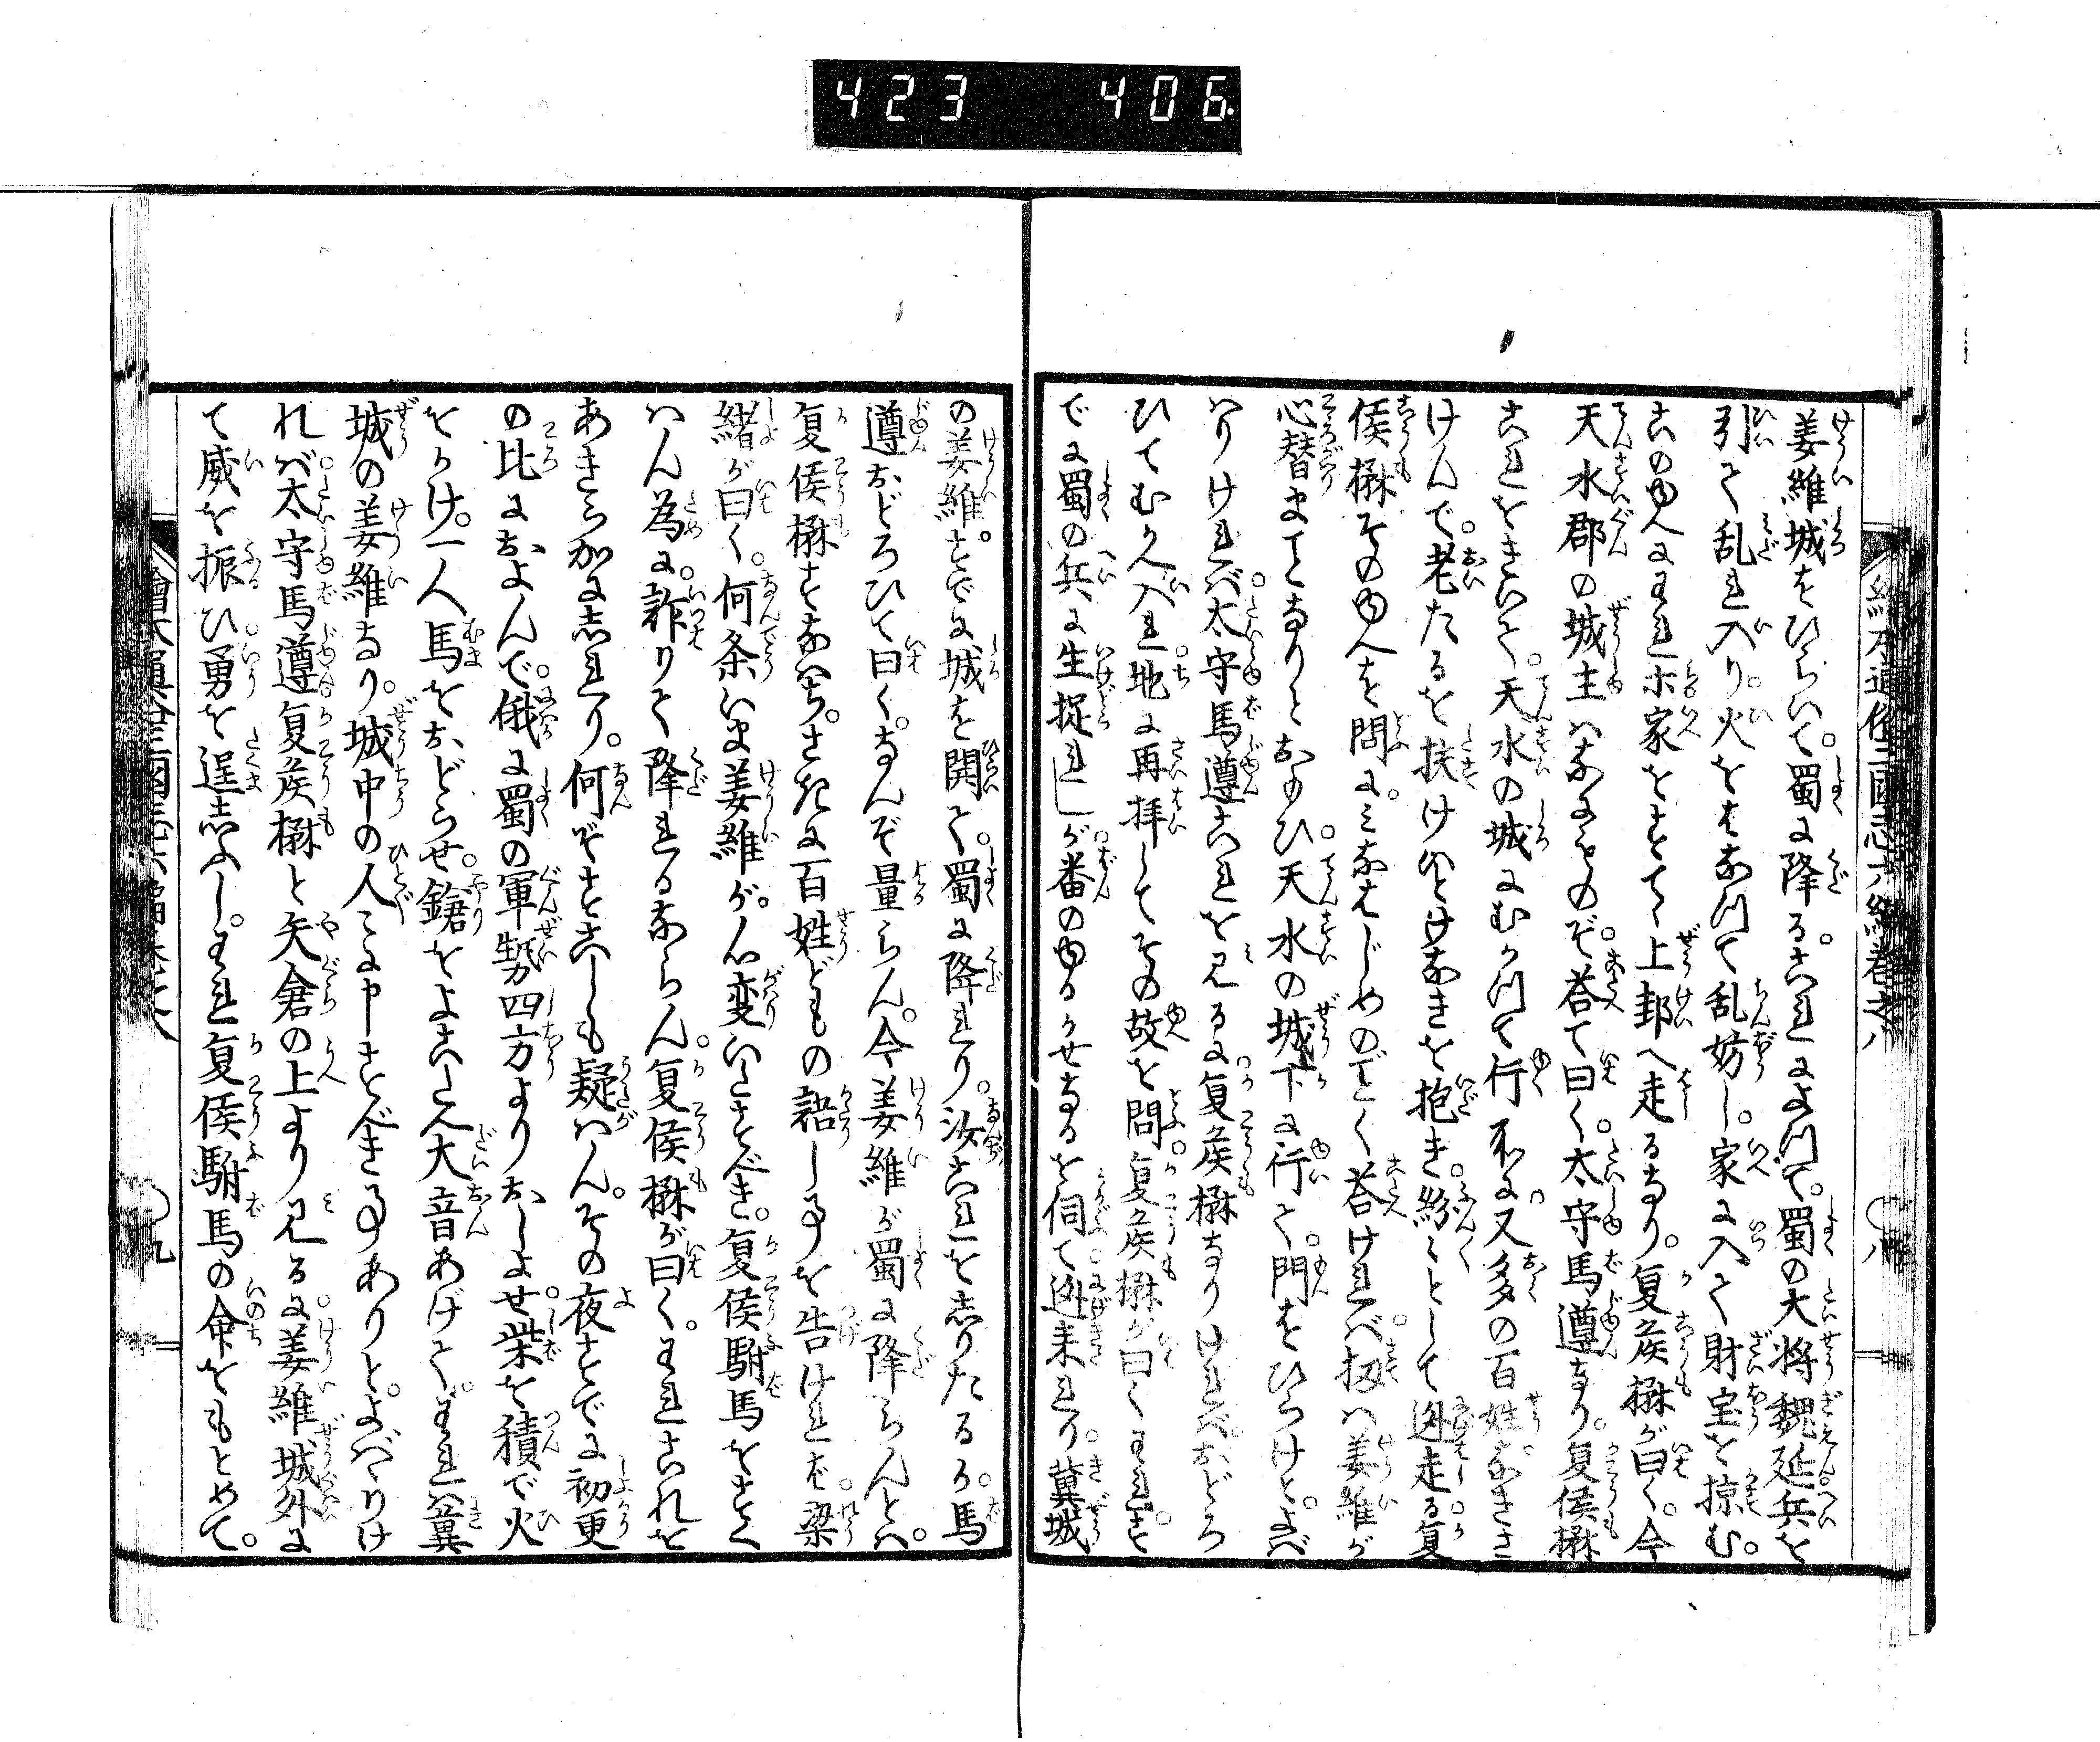 423 406
姜維城をひらいて。蜀に降る。これによつて。蜀の大将魏延兵を
引て乱れ入り火をはなつて乱妨し。家に入て財宝を掠む。
このゆへにわれホ家をすてゝ上邽へ走るなり。夏侯楙が曰く。今
天水郡の城主はなにものぞ。答て曰く。太守馬遵なり。夏侯楙
これをきいて。天水の城にむかつて行ホに。又多の百姓おさ
けんで。老たるを扶けいとけなきを抱き。紛々として迯走る夏
侯楙そのゆへを問に。みなはじめのごとく答けれバ。扨は姜維が
心替まことなりとおもひ。天水の城下に行て。門をひらけとよバ
はりけれバ。太守馬遵これを見るに夏侯楙なりけれバ。おどろ
ひてむかへ入れ地に再拝してその故を問。夏侯楙が曰くわれす
でに蜀の兵に生捉れしが。番のゆるかせなるを伺て迯来れり。冀城
の姜維。すでに城を開て。蜀に降れり。汝これをしりたるか。馬
遵おどろひて曰く。なんぞ量らん。今姜維が蜀に降らんとハ。
夏侯楙すなハち。さきに百姓どもの語し事を告けれは。梁
緒が曰く。何条いま姜維が。心変いたすべき。夏侯駙馬をすく
はん為に。詐りて降れるならん。夏侯楙が曰く。われこれを
あきらかにしれり。何ぞすこしも疑はん。その夜すでに初更
の比におよんで。俄に蜀の軍勢四方よりおしよせ。柴を積で火
をかけ。一人馬をおどらせ。鎗をよこたへ大音あげて。われハ冀
城の姜維なり。城中の人々に申すべき事ありと。よバゝりけ
れバ。太守馬遵。夏侯楙と矢倉の上より見るに。姜維城外に
て威を振ひ。勇を逞しふし。われ夏侯駙馬の命をもとめて。